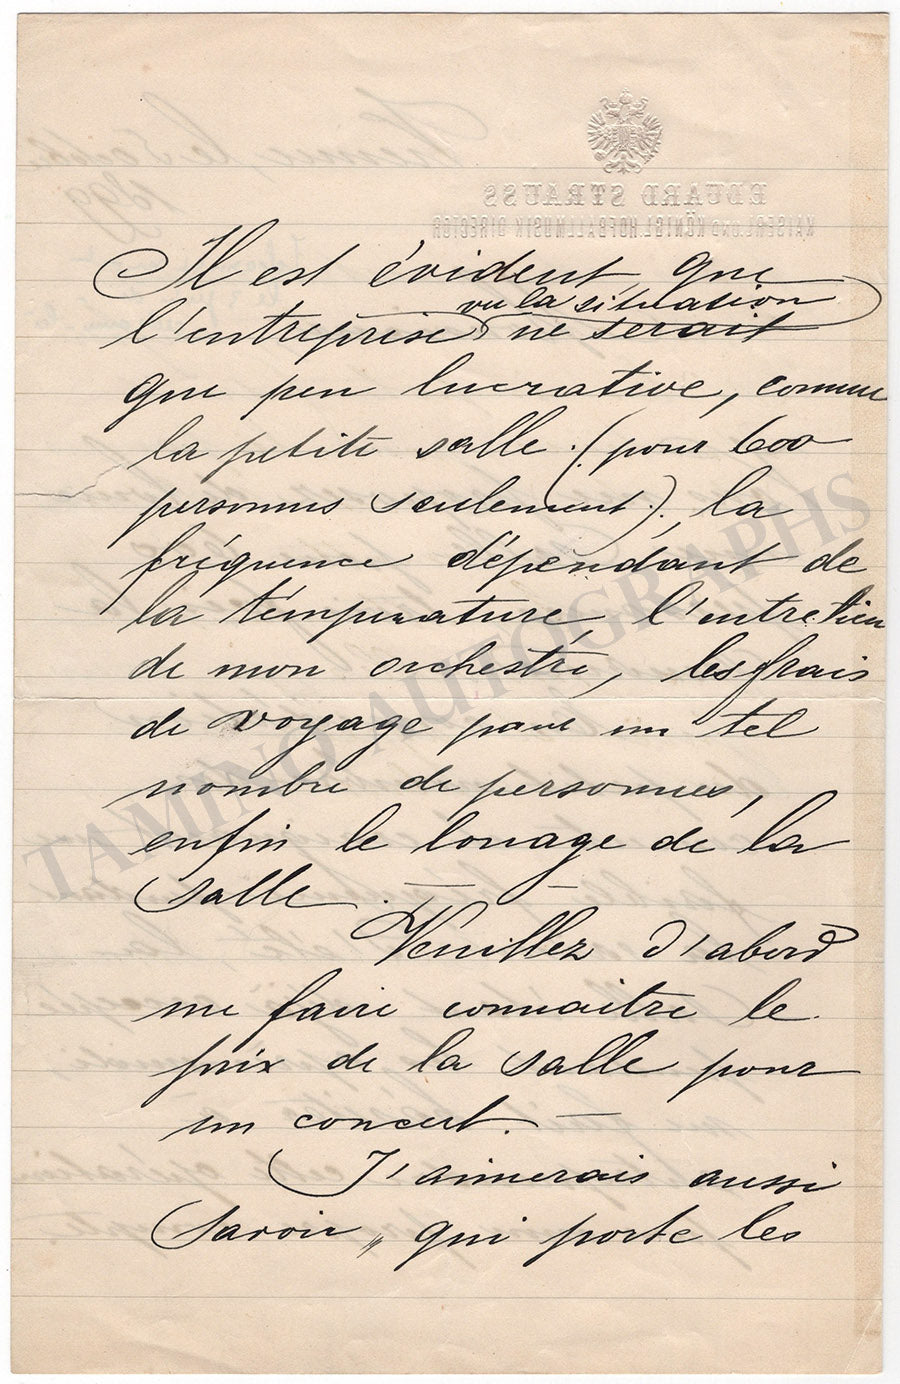 EDUARD STRAUSS
KAISERL. UND KÖNIGL. HOFBALLMUSIK DIRECTOR
Il est évident, que
vu la situation
l'entreprise, ne serait
que peu lucrative, comme
la petite salle (pour 600
personnes seulement), la
fréquence dépendant de
la température, l'entretien
de mon orchestre, les frais
de voyage pour un tel
nombre de personnes,
enfin le louage de la
salle. — —
Veuillez d'abord
me faire connaitre le
prix de la salle pour
un concert. —
J'aimerais aussi
savoir „ qui porte les
TAMINO AUTOGRAPHS